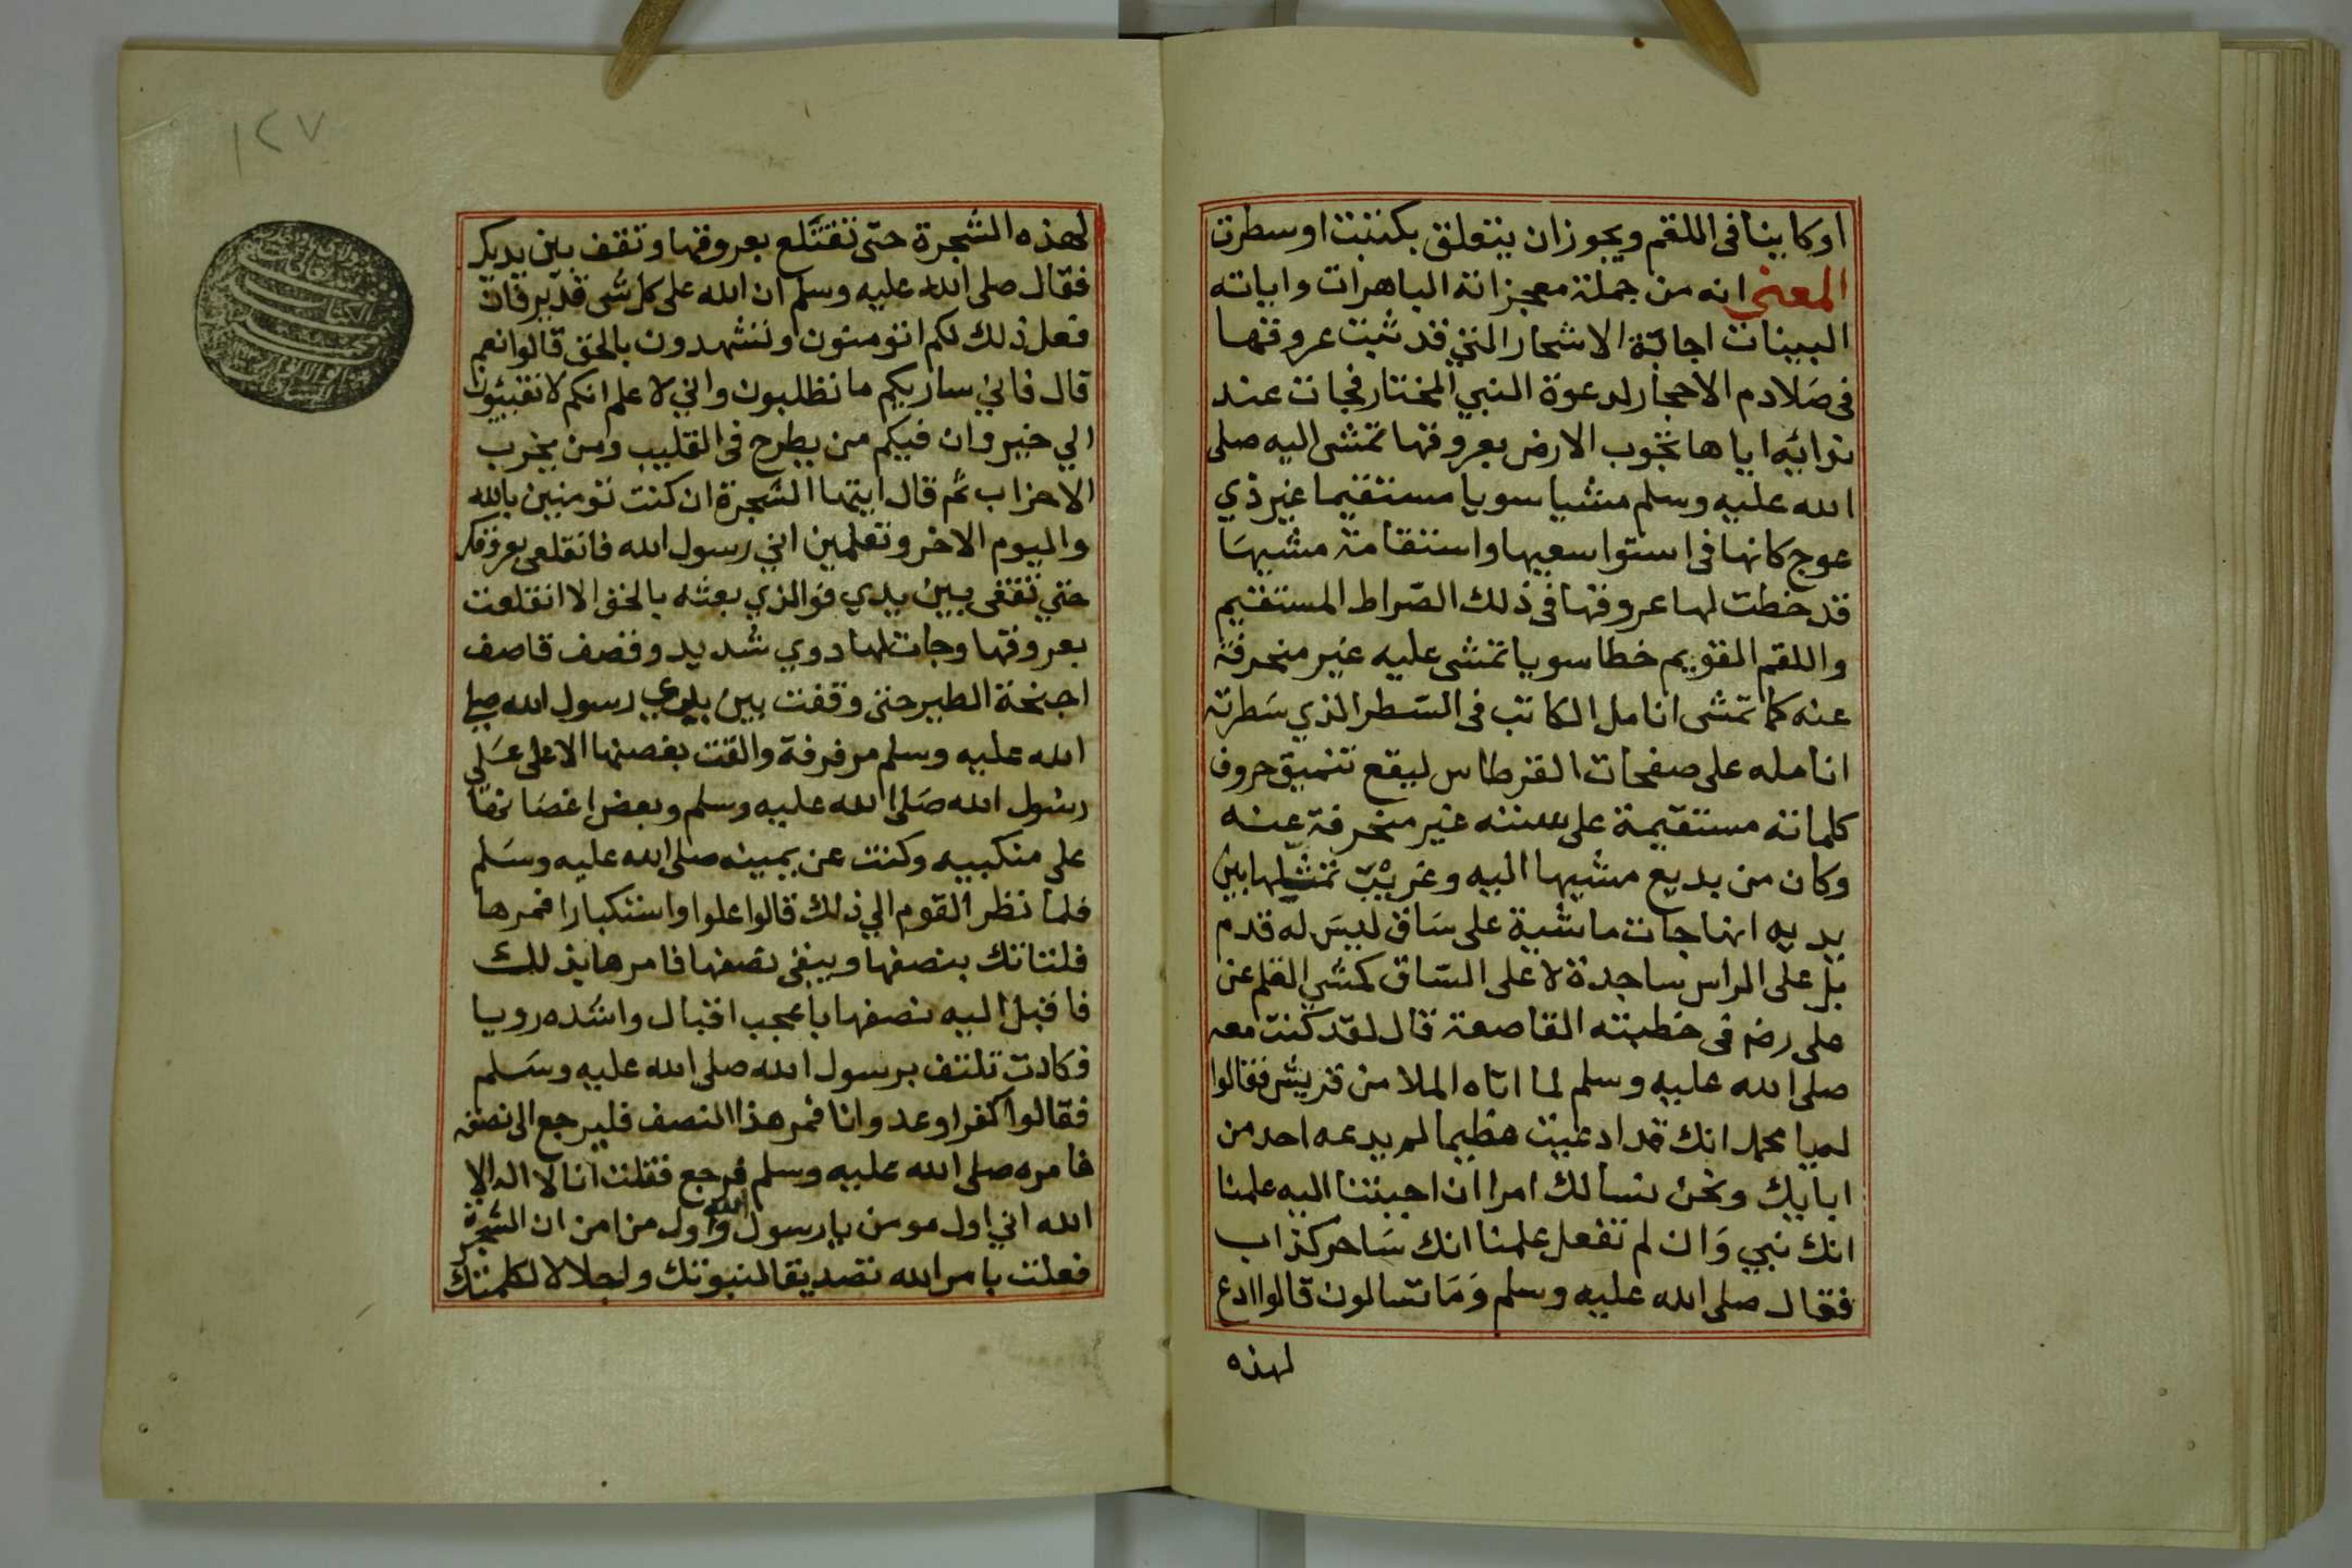 اوكاينا فى اللقم ويجوز ان يتعلق بكتبت او سطرت
المعنى انه من جملة معجزاته الباهرات واياته
البينات اجابة الاشجار التي قد ثبت عروقها
فى صلادم الاحجار لدعوة النبي المختار فجات عند
ندائه اياها تجوب الارض بعروقها تمشى اليه صلى
الله عليه وسلم مشيا سويا مستقيما غير ذي
عوج كانها فى استوا سعيها واستقامة مشيها
قد خطت لها عروقها فى ذلك الصراط المستقيم
واللقم القويم خطا سويا تمشى عليه غير منحرفة
عنه كما تمشى انامل الكاتب فى السطر الذي سطرته
انامله على صفحات القرطاس ليقع تنميق حروف
كلماته مستقيمة على سننه غير منحرفة عنه
وكان من بديع مشيها اليه وغريب تمثلها بين
يديه انها جات ماشية على ساق ليس له قدم
بل على الراس ساجدة لا على الساق كمشي القلم عن
على رضه فى خطبته القاصعة قال لقد كنت معه
صلى الله عليه وسلم لما اتاه الملا من قريش فقالوا
له يا محمد انك قد ادعيت عظيما لم يدعه احد من
ابايك ونحن نسالك امرا ان اجبتنا اليه علمنا
انك نبي وان لم تفعل علمنا انك ساحر كذاب
فقال صلى الله عليه وسلم وما تسالون قالوا ادع
لهذه
١٢٧
لهذه الشجرة حتى تقتلع بعروقها وتقف بين يديك
فقال صلى الله عليه وسلم ان الله على كل شى قدير فان
فعل ذلك لكم اتومنون وتشهدون بالحق قالوا نعم
قال فاني ساريكم ما تطلبون واني لاعلم انكم لا تفيئون
الي خير وان فيكم من يطرح فى القليب ومن يحزب
الاحزاب ثم قال ايتها الشجرة ان كنت تومنين بالله
واليوم الاخر وتعلمين اني رسول الله فانقلعى بعروقك
حتي تقفى بين يدي فوالذي بعثه بالحق الا انقلعت
بعروقها وجات لها دوي شديد وقصف قاصف
اجنحة الطير حتى وقفت بين يدي رسول الله صلى
الله عليه وسلم مرفرفة والقت بغصنها الاعلى على
رسول الله صلى الله عليه وسلم وبعض اغصانها
على منكبيه وكنت عن يمينه صلى الله عليه وسلم
فلما نظر القوم الي ذلك قالوا علوا واستكبارا فمرها
فلتاتك بنصفها ويبقى نصفها فامرها بذلك
فاقبل اليه نصفها باعجب اقبال واشده دويا
فكادت تلتف برسول الله صلى الله عليه وسلم
فقالوا كفرا وعدوانا فمر هذا النصف فليرجع الى نصفه
فامره صلى الله عليه وسلم فرجع فقلت انا لا اله الا
الله اني اول مومن يا رسول الله واول من امن ان الشجرة
فعلت بامر الله تصديقا لنبوتك واجلالا لكلمتك